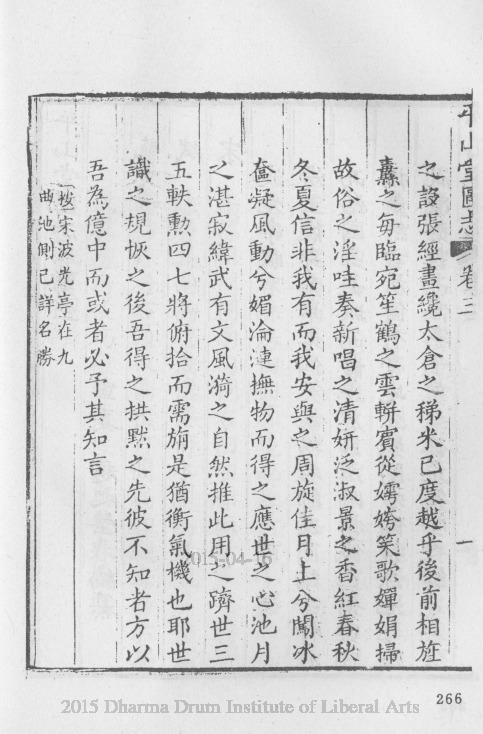 平山堂圖志 卷三 一
之設張經畫纔太倉之稊米已度越乎後前相旌
纛之每臨宛笙鶴之雲輧賓從嫮姱筞歌嬋娟掃
故俗之淫哇奏新唱之清妍泛淑景之香紅春秋
冬夏信非我有而我安與之周旋佳月上兮闖冰
奩凝風動兮媚淪漣撫物而得之應世之心池月
之湛寂緯武有文風漪之自然推此用之躋世三
五軼勲四七將俯拾而需旃是猶衡氣機也耶世
識之規恢之後吾得之拱默之先彼不知者方以
吾為億中而或者必予其知言
按宋波光亭在九
曲池側已詳名勝
2015-04-16
266
2015 Dharma Drum Institute of Liberal Arts